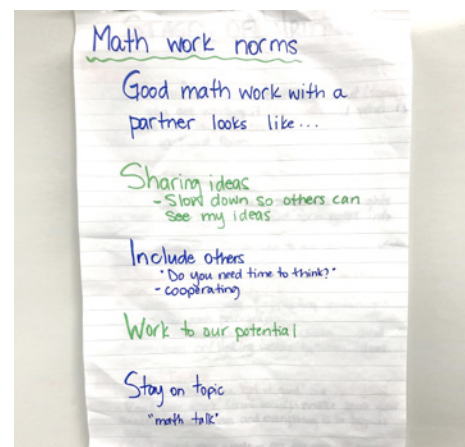 Math work norms
Good math work with a
partner looks like...
Sharing ideas
- Slow down so others can
see my ideas
Include others
"Do you need time to think?"
- cooperating
Work to our potential
Stay on topic
"math talk"